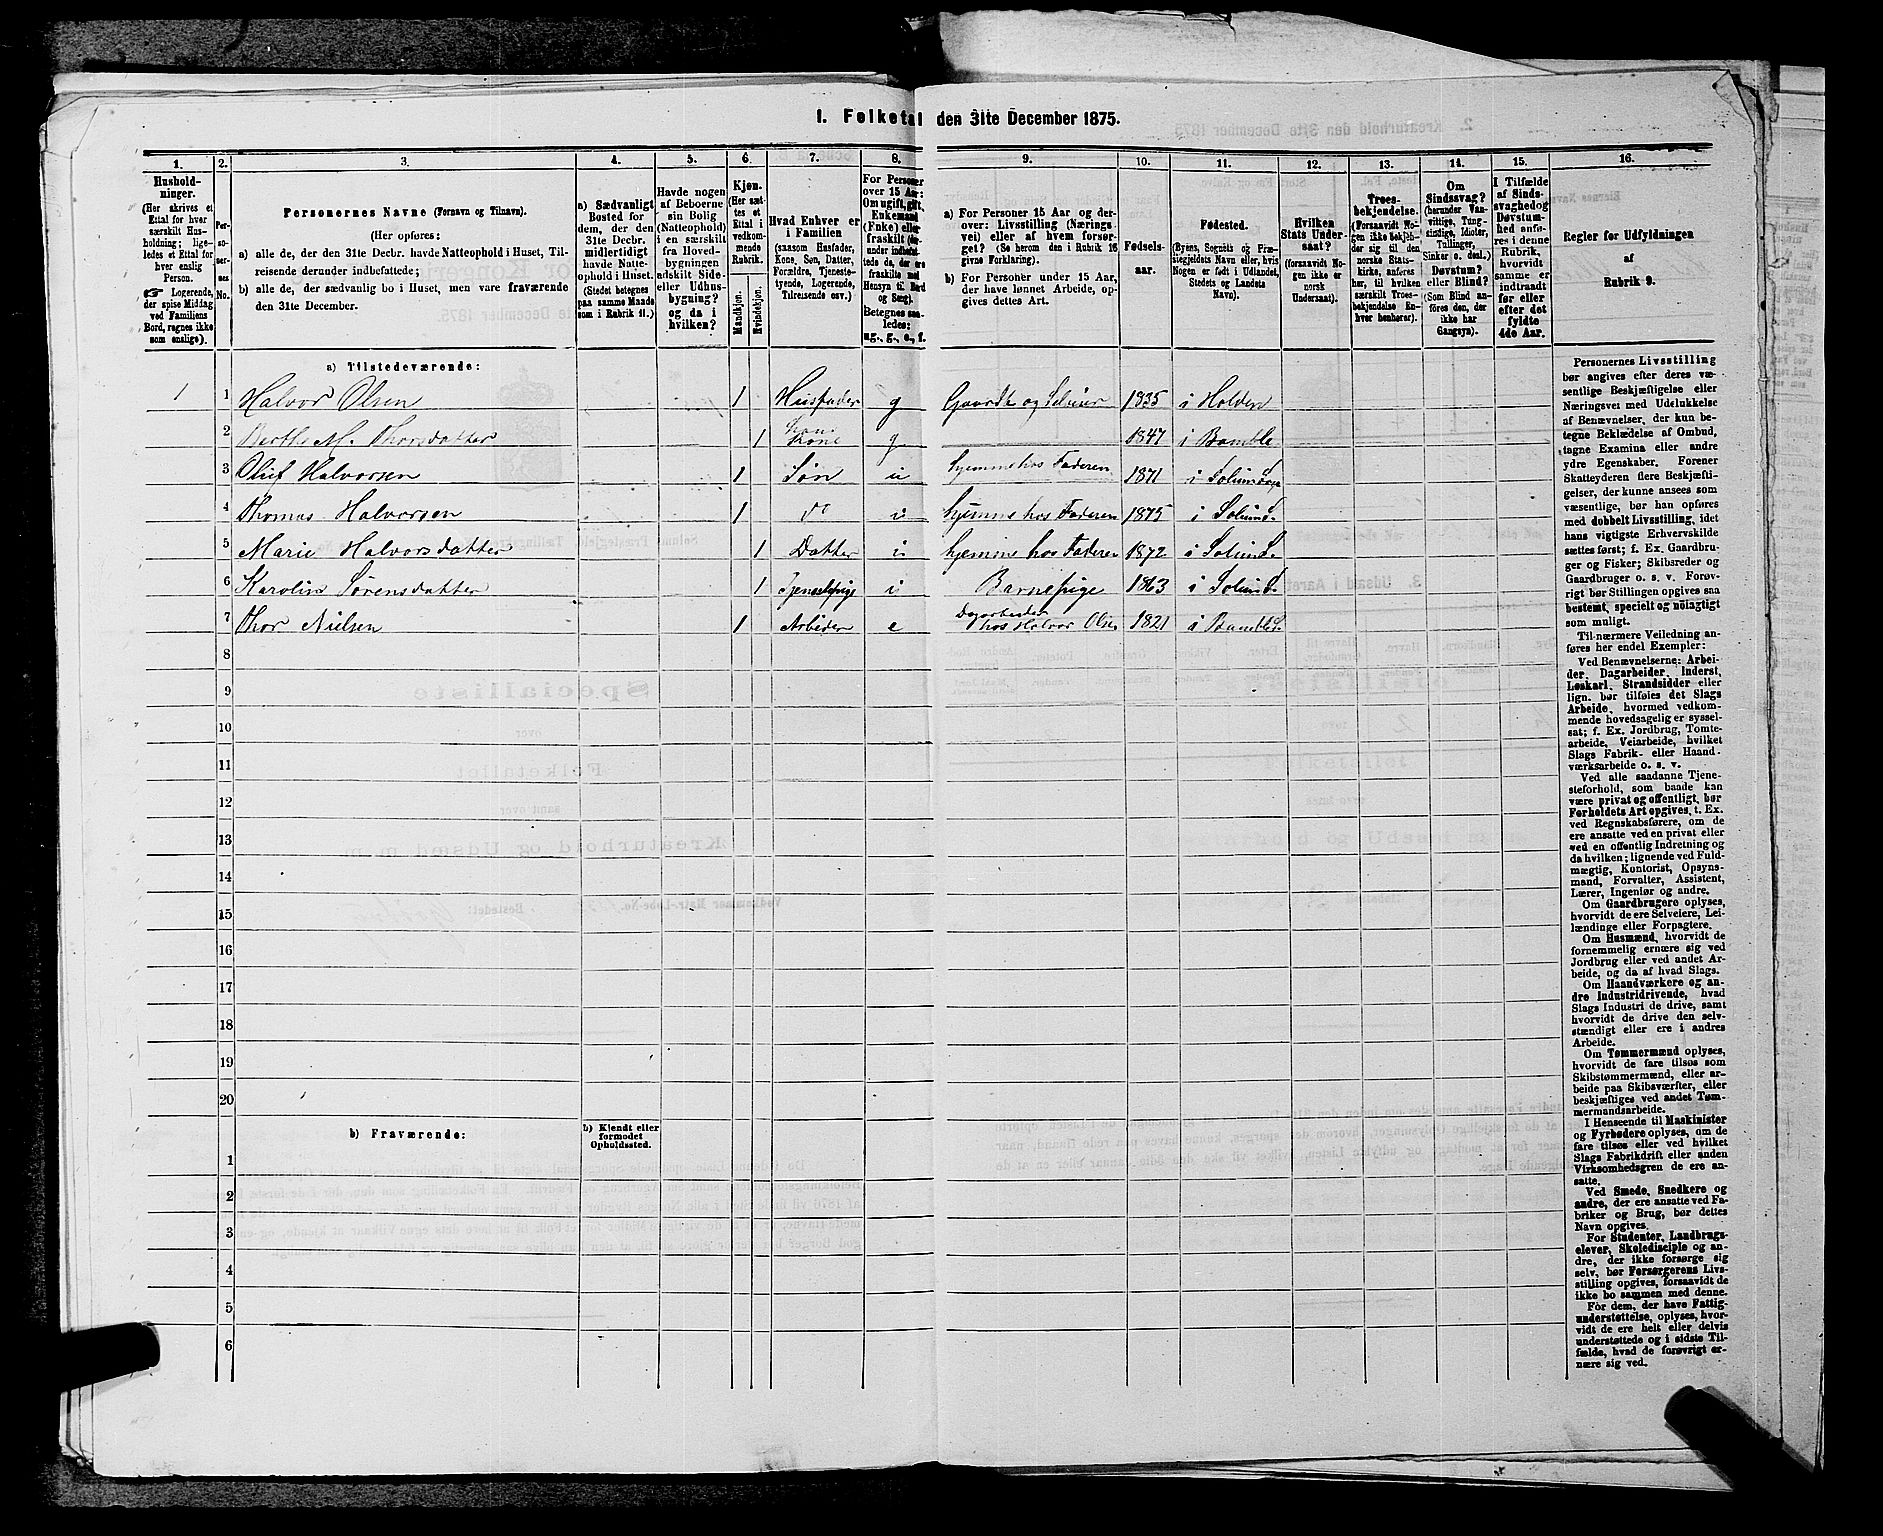 I. Folketal den 31te December 1875.
1. 2. 3. 4. 5. 6. 7. 8. 9. 10. 11. 12. 13. 14. 15. 16.
Hushold-
ninger.
(Her skrives et
Ettal for hver
særskilt Hus-
holdning; lige-
ledes et Ettal for
hver enslig
Person.
☞ Logerende,
der spise Middag
ved Familiens
Bord, regnes ikke
som enslige).
Per-
so-
ner-
nes
No.
Personernes Navne (Fornavn og Tilnavn).
(Her opføres:
a) alle de, der den 31te Decbr. havde Natteophold i Huset, Til-
reisende derunder indbefattede;
b) alle de, der sædvanlig bo i Huset, men vare fraværende
den 31te December.
a) Sædvanligt
Bosted for
dem, der den
31te Decbr.
midlertidigt
havde Natte-
ophold i Huset.
(Stedet betegnes
paa samme Maade
som i Rubrik 11.)
Havde nogen
af Beboerne
sin Bolig
(Natteophold)
i en særskilt
fra Hoved-
bygningen
adskilt Side-
eller Udhus-
bygning?
og da i
hvilken?
Kjøn.
(Her sæt-
tes et
Ettal i
vedkom-
mende
Rubrik.
Mandkjøn.
Kvindekjøn.
Hvad Enhver er
i Familien
(saasom Husfader,
Kone, Søn, Datter,
Forældre, Tjeneste-
tyende, Logerende,
Tilreisende osv.)
For Personer
over 15 Aar:
Om ugift, gift,
Enkemand
(Enke) eller
fraskilt
Betegnes saa-
ledes:
ug., g., e., f.
a) For Personer 15 Aar og der-
over: Livsstilling (Nærings-
vei) eller af hvem forsør-
get? (Se herom den i Rubrik 16
givne Forklaring).
b) For Personer under 15 Aar,
der have lønnet Arbeide, op-
gives dettes Art.
Fødsels-
aar.
Fødested.
(Byens, Sognets og Præ-
stegjeldets Navn eller, hvis
Nogen er født i Udlandet,
Stedets og Landets
Navn).
Hvilken
Stats Under
saat?
(forsaavidt No-
gen ikke er
norsk
Undersaat).
Troes-
bekjendelse.
(Forsaavidt No-
gen ikke bekjen-
der sig til den
norske Stats-
kirke, anføres
her, til hvilken
særskilt Troes-
bekjendelse En-
hver henhører).
Om
Sindssvag?
(herunder Van-
vittige, Tung-
sindige, Idioter,
Tullinger,
Sinker o. desl.)
Døvstum?
eller Blind?
(Som Blind an-
føres den, der
ikke har
Gangsyn).
I Tilfælde
af Sinds-
svaghed og
Døvstum-
hed anfø-
res i denne
Rubrik,
hvorvidt
samme er
indtraadt
før eller
efter det
fyldte
4de Aar.
Regler for Udfyldningen
af
Rubrik 9.
a) Tilstedeværende:
1 1 Halvor Olsen 1 Husfader g Gaardb og Selveier 1835 i Holden
2 Berthe M. Thorsdatter 1 Kone g 1847 i Bamble
3 Oluf Halvorsen 1 Søn u hjemme hos Faderen 1871 i Solum
4 Thomas Halvorsen 1 do u hjemme hos Faderen 1875 i Solum S.
5 Marie Halvorsdatter 1 Datter u hjemme hos Faderen 1872 i Solum S.
6 Karolin Sørensdatter 1 Tjenestpige u Barnepige 1863 i Solum S.
7 Thor Nielsen 1 Arbeider e Dagarbeider hos Halvor Olsen 1821 i Bamble S.
8
9
10
11
12
13
14
15
16
17
18
19
20
b) Fraværende: b) Kjendt eller
formodet
Opholdssted.
1
2
3
4
5
6
Personernes Livsstilling
bør angives efter deres væ-
sentlige Beskjæftigelse eller
Næringsvei med Udelukkelse
af Benævnelser, der kun be-
tegne Beklædelse af Ombud,
tagne Examina eller andre
ydre Egenskaber. Forener
Skatteyderen flere Beskjæfti-
gelser, der kunne ansees som
væsentlige, bør han opføres
med dobbelt Livsstilling, idet
hans vigtigste Erhvervskilde
sættes først; f. Ex. Gaardbru-
ger og Fisker; Skibsreder og
Gaardbruger o. s. v. Forøv-
rigt bør Stillingen opgives saa
bestemt, specielt og nøiagtigt
som muligt.
Til nærmere Veiledning an-
føres her endel Exempler:
Ved Benævnelserne: Arbei-
der, Dagarbeider, Inderst,
Løskarl, Strandsidder eller
lign. bør tilføies det Slags
Arbeide, hvormed vedkom-
mende hovedsagelig er syssel-
sat; f. Ex. Jordbrug, Tomte-
arbeide, Veiarbeide, hvilket
Slags Fabrik- eller Haand-
værksarbeide o. s. v.
Ved alle saadanne Tjene-
steforhold, som baade kan
være privat og offentligt, bør
Forholdets Art opgives, t. Ex.
ved Regnskabsførere, om de
ere ansatte ved en privat eller
ved en offentlig Indretning og
da hvilken; lignende ved Fuld-
mægtig, Kontorist, Opsyns-
mand, Forvalter, Assistent,
Lærer, Ingeniør og andre.
Om Gaardbrugere oplyses,
hvorvidt de ere Selveiere, Lei-
lændinge eller Forpagtere.
Om Husmænd, hvorvidt de
fornemmelig ernære sig ved
Jordbrug eller ved andet Ar-
beide, og da af hvad Slags.
Om Haandværkere og an-
dre Industridrivende, hvad
Slags Industri de drive, samt
hvorvidt de drive den selv-
stændigt eller ere i andres
Arbeide.
Om Tømmermænd oplyses,
hvorvidt de fare tilsøs som
Skibstømmermænd, eller ar-
beide paa Skibsværfter, eller
beskjæftiges ved andet Tøm-
mermandsarbeide.
I Henseende til Maskinister
og Fyrbødere oplyses, om de
fare tilsøs eller ved hvilket
Slags Fabrikdrift eller anden
Virksomhedsgren de ere an-
satte.
Ved Smede, Snedkere og
andre, der ere ansatte ved Fa-
briker og Brug, bør dettes
Navn opgives.
For Studenter, Landbrugs-
elever, Skoledisciple og an-
dre, der ikke forsørge sig
selv, bør Forsørgerens Livs-
stilling opgives, forsaavidt de
ikke bo sammen med denne.
For dem, der have Fattig-
understøttelse, oplyses, hvor-
vidt de ere helt eller delvis
understøttede og i sidste Til-
fælde, hvad de forøvrigt er-
nære sig ved.